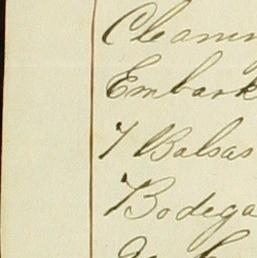 Cleann
Embark
7 Balsas
Bodega